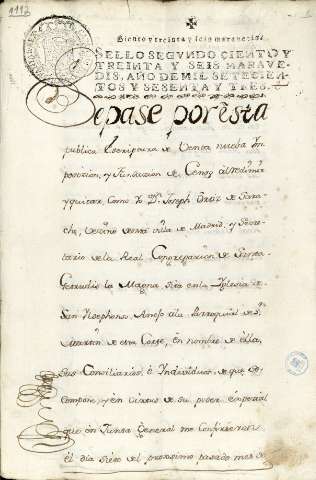 1112
Ciento y treinta y seis maravedis.
SELLO SEGVNDO, CIENTO Y
TREINTA Y SEIS MARAVE-
DIS, AÑO DE MIL SETECIEN-
TOS Y SESENTA Y TRES.
Sepase por esta
publica Escriptura de Venta nueba Ym
posicion, y fundacion de Censo al redimir
y quitar, Como Yo Dn. Joseph Ortiz de
Vecino de esta villa de Madrid, y Secre
tario de la Real Congregacion de Santa
Gertrudis la Magna sita en la Yglesia de
San Yldephonso, Anejo a la Parroquial de Sn.
Martin de esta Corte, en nombre de ella,
sus Conciliarios, é Yndividuos, de que se
compone, y en virtud de su poder especial
que en Junta General me Confirieron
el dia siete del proximo pasado mes de